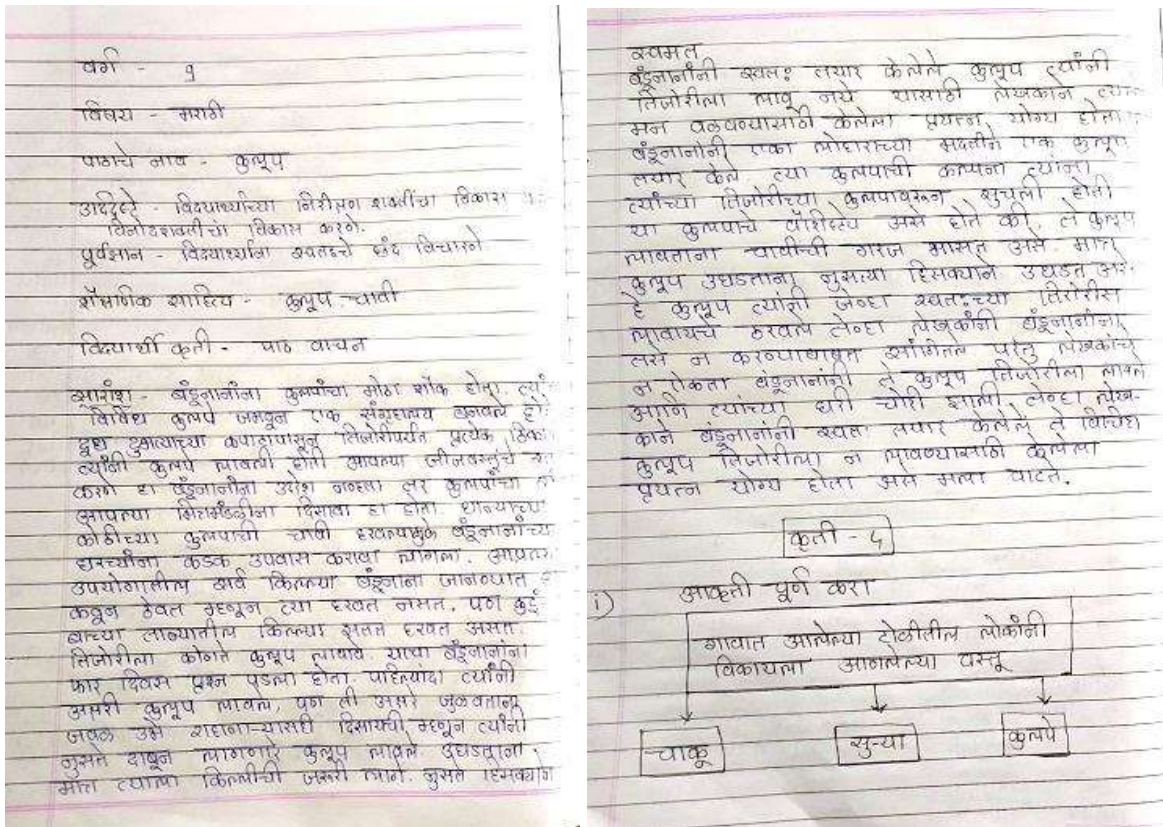 वर्ग - 9
विषय - मराठी
पाठाचे नाव - कुलूप
उद्दिष्टे - विद्यार्थ्यांच्या निरीक्षण शक्तीचा विकास
विनोदशक्तीचा विकास करणे.
पूर्वज्ञान - विद्यार्थ्यांना स्वतःचे छंद विचारणे
शैक्षणिक साहित्य - कुलूप - चावी
विद्यार्थी कृती - पाठ वाचन
सारांश - बंडूनानांना कुलपांचा मोठा शौक होता.
विविध कुलपे जमवून एक संग्रहालय बनवले
दूध दुभत्याच्या कपाटापासून तिजोरीपर्यंत प्रत्येक
त्यांनी कुलपे लावली होती आपल्या चीजवस्तूंचे
करणे हा बंडूनानांचा उद्देश नव्हता तर कुलपांचा
आपल्या मित्रमंडळींना दिसावा हा होता. धान्याच्या
कोठीच्या कुलपाची चावी हरवल्यामुळे बंडूनानांच्या
घरच्यांना कडक उपवास करावा लागला.
उपयोगातील सर्व किल्ल्या बंडूनाना जानव्यात
ठेवत म्हणून त्या हरवत नसत. पण
ताब्यातील किल्ल्या सतत हरवत असत.
तिजोरीला कोणते कुलूप लावावे याचा बंडूनानांना
फार दिवस प्रश्न पडला होता. पहिल्यांदा त्यांनी
अक्षरी कुलूप लावले, पण ती अक्षरे जुळवताना
जवळ उभे राहणाऱ्यासही दिसायची म्हणून त्यांनी
नुसते दाबून लागणारे कुलूप लावले. उघडताना
मात्र त्याला किल्लीची जरूरी लागे. नुसत्या हिसक्याने
स्वमत
बंडूनानांनी स्वतः तयार केलेले कुलूप त्यांनी
तिजोरीला लावू नये यासाठी लेखकाने
मन वळवण्यासाठी केलेला प्रयत्न, योग्य होता.
बंडूनानांनी एका लोहाराच्या मदतीने एक कुलूप
तयार केले. त्या कुलपाची कल्पना त्यांना
त्यांच्या तिजोरीच्या कुलपावरून सुचली होती
या कुलपाचे वैशिष्ट्य असे होते की, ते कुलूप
लावताना चावीची गरज भासत असे. मात्र
कुलूप उघडताना नुसत्या हिसक्याने उघडत असे.
हे कुलूप त्यांनी जेव्हा स्वतःच्या तिजोरीस
लावायचे ठरवले तेव्हा लेखकांनी बंडूनानांना
तसे न करण्याबाबत सांगितले परंतु लेखकाचे
न ऐकता बंडूनानांनी ते कुलूप तिजोरीला लावले
आणि त्यांच्या घरी चोरी झाली. तेव्हा लेख-
काने बंडूनानांनी स्वतः तयार केलेले ते विचित्र
कुलूप तिजोरीला न लावण्यासाठी केलेला
प्रयत्न योग्य होता असे मला वाटते.
कृती - ५
i) आकृती पूर्ण करा
गावात आलेल्या टोळीतील लोकांनी
विकायला आणलेल्या वस्तू
चाकू सुऱ्या कुलपे